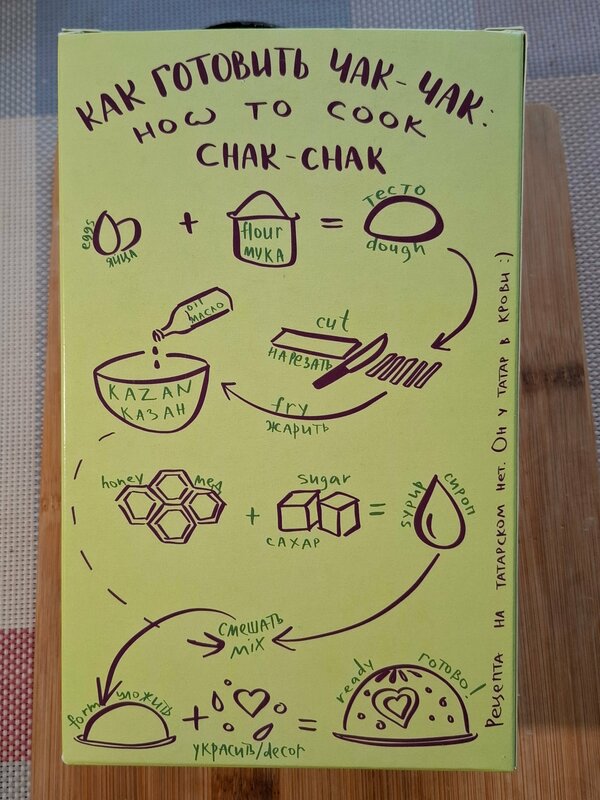 КАК ГОТОВИТЬ ЧАК-ЧАК:
HOW TO COOK
CHAK-CHAK
eggs
ЯЙЦА
+
flour
МУКА
=
ТЕСТО
dough
oil
МАСЛО
cut
НАРЕЗАТЬ
KAZAN
КАЗАН
fry
ЖАРИТЬ
honey
МЕД
+
sugar
САХАР
=
syрир
сироп
СМЕШАТЬ
MIX
form
УЛОЖИТЬ
+
УКРАСИТЬ/decor
=
ready
ГОТОВО!
Рецепта на татарском нет. Он у татар в крови :)